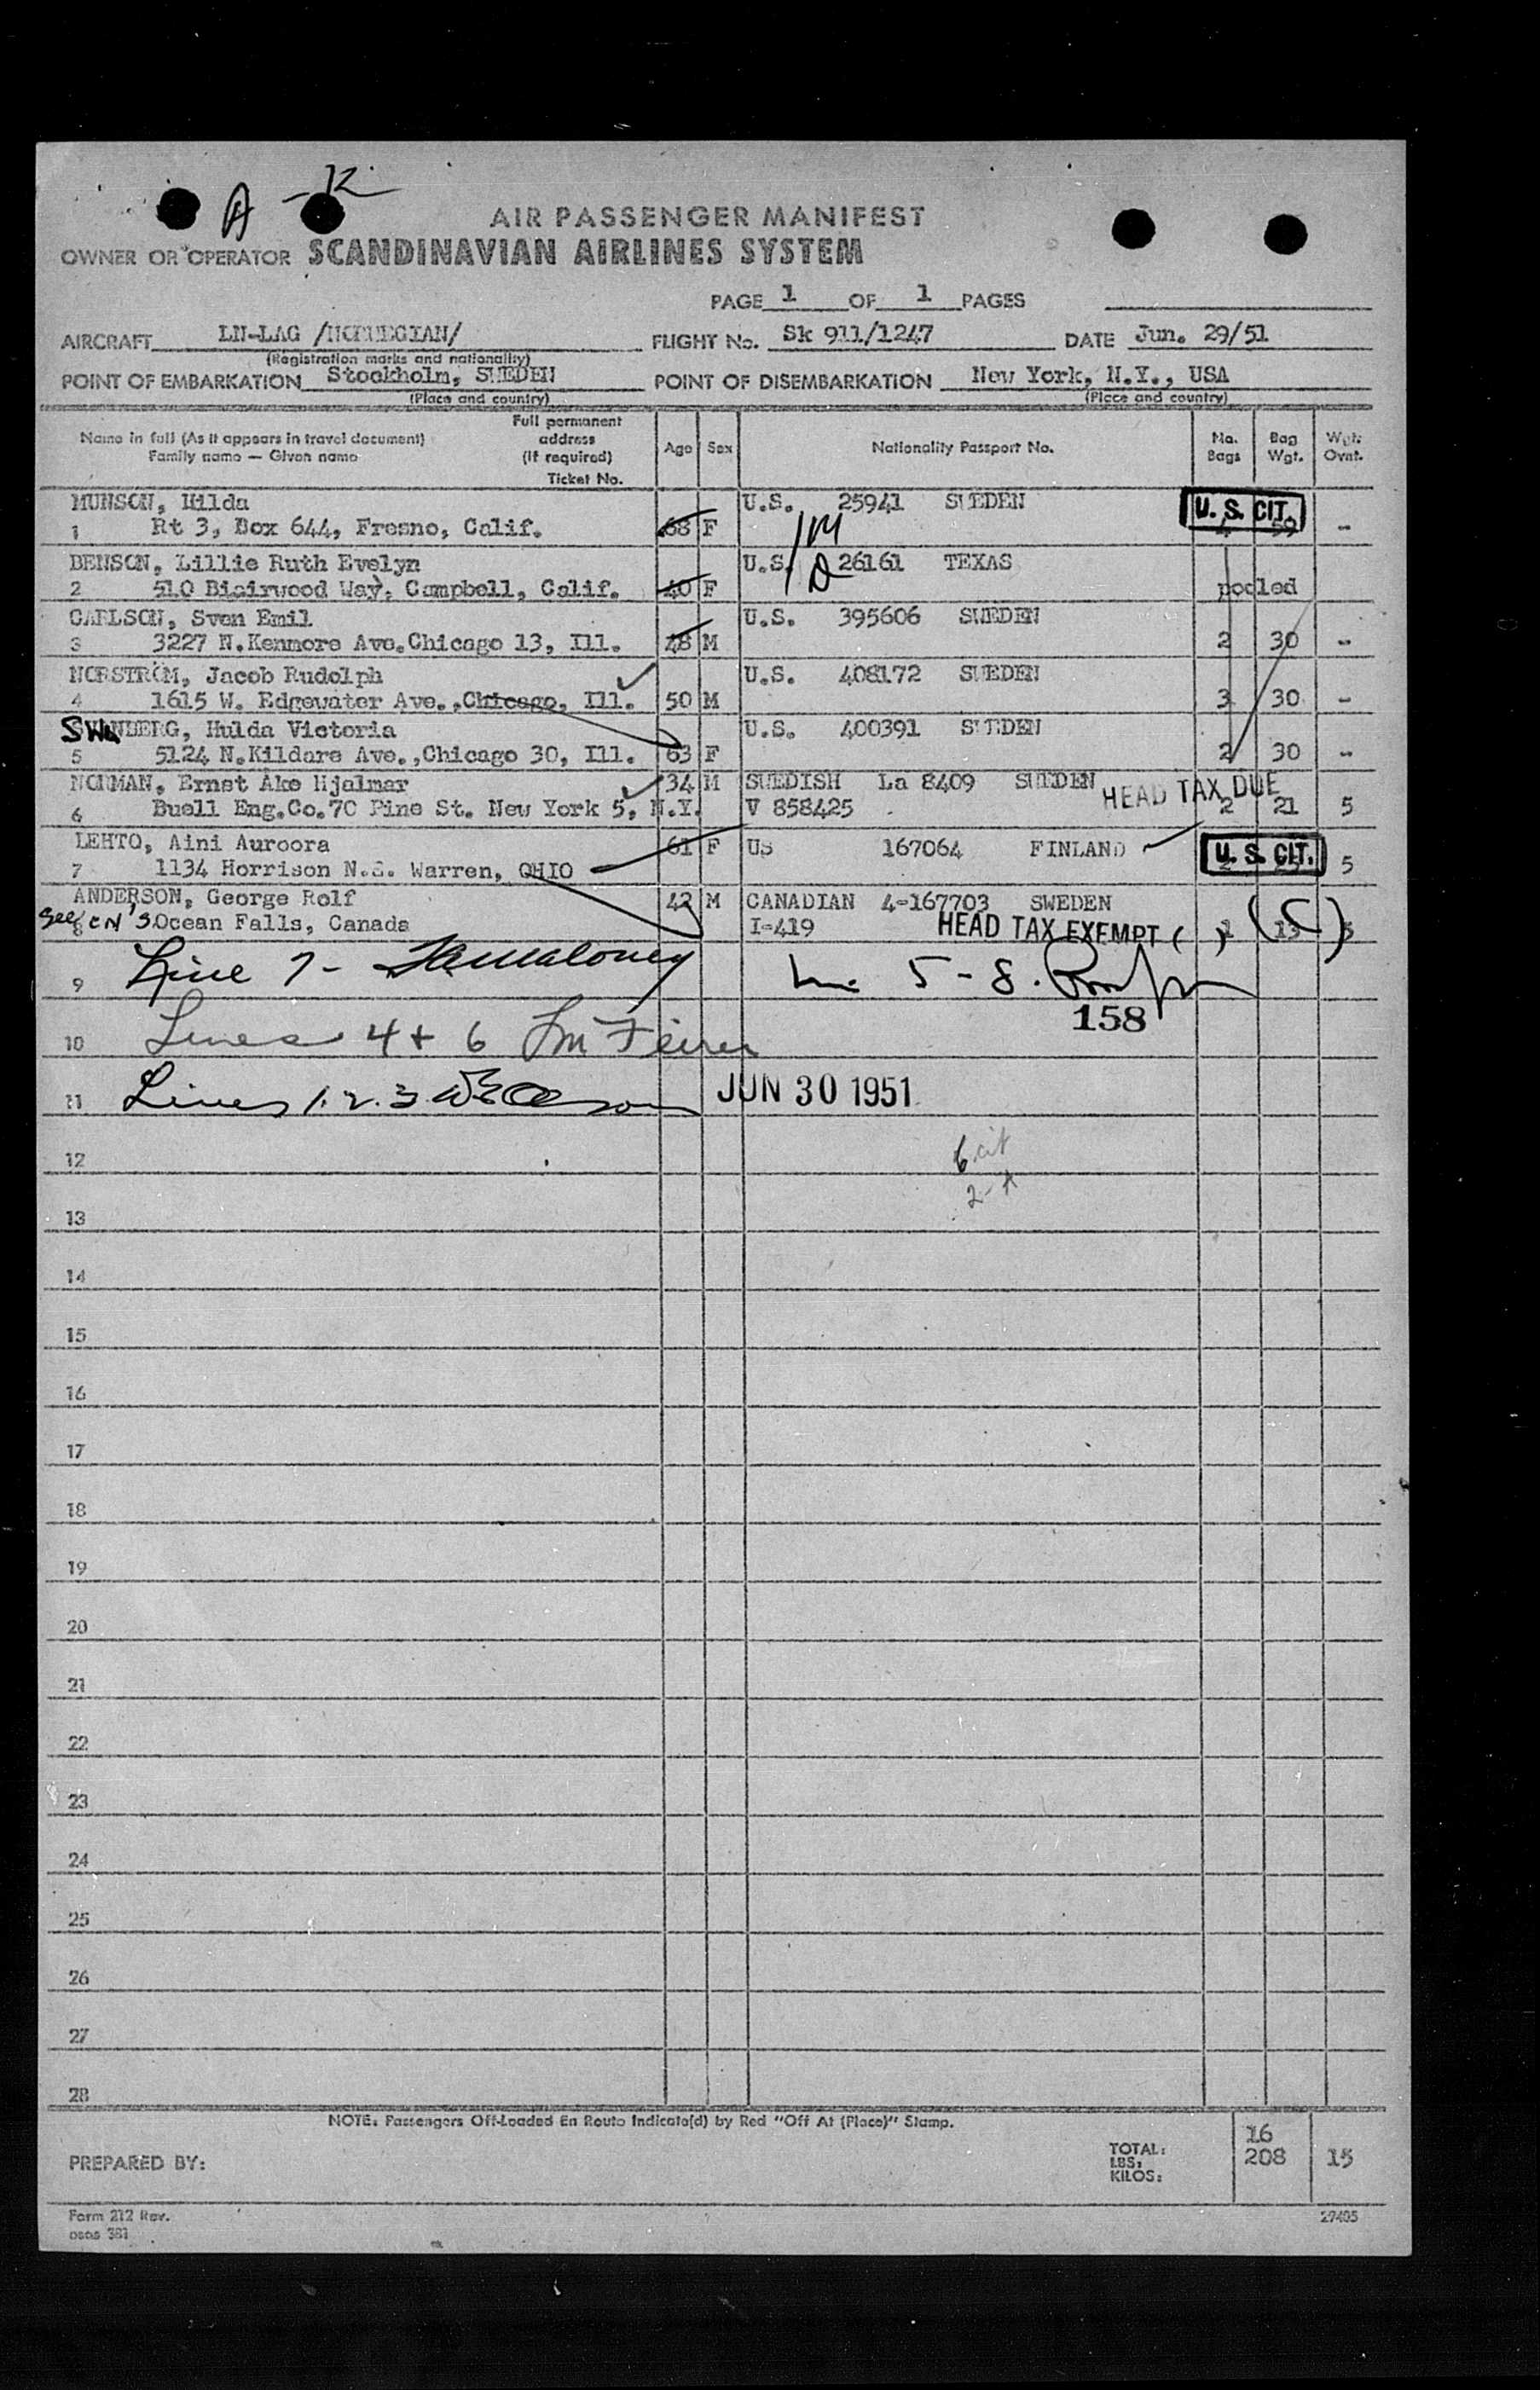 A - K
AIR PASSENGER MANIFEST
OWNER OR OPERATOR SCANDINAVIAN AIRLINES SYSTEM
PAGE 1 OF 1 PAGES
AIRCRAFT LN-LAG /NORWEGIAN/ FLIGHT No. Sk 911/1247 DATE Jun. 29/51
(Registration marks and nationality)
POINT OF EMBARKATION Stockholm, SWEDEN POINT OF DISEMBARKATION New York, N.Y., USA
(Place and country) (Place and country)
Name in full (As it appears in travel document) Family name — Given name Full permanent address (If required) Ticket No. Age Sex Nationality Passport No. No. Bags Bag Wgt. Wgt. Ovnt.
MUNSON, Hilda U.S. 25941 SWEDEN U. S. CIT.
1 Rt 3, Box 644, Fresno, Calif. 68 F 59 -
BENSON, Lillie Ruth Evelyn U.S. 26161 TEXAS
2 510 Blairwood Way, Campbell, Calif. 40 F pooled
CARLSON, Sven Emil U.S. 395606 SWEDEN
3 3227 N.Kenmore Ave.Chicago 13, Ill. 48 M 2 30 -
NORSTROM, Jacob Rudolph U.S. 408172 SWEDEN
4 1615 W. Edgewater Ave.,Chicago, Ill. 50 M 3 30 -
SWANBERG, Hulda Victoria U.S. 400391 SWEDEN
5 5124 N.Kildare Ave.,Chicago 30, Ill. 63 F 2 30 -
NORMAN, Ernst Ake Hjalmar 34 M SWEDISH La 8409 SWEDEN HEAD TAX DUE
6 Buell Eng.Co.70 Pine St. New York 5, N.Y. V 858425 2 21 5
LEHTO, Aini Auroora 61 F US 167064 FINLAND U. S. CIT.
7 1134 Horrison N.E. Warren, OHIO 5
ANDERSON, George Rolf 42 M CANADIAN 4-167703 SWEDEN
8 Ocean Falls, Canada I-419 HEAD TAX EXEMPT ( ) 1 15 5
9 Line 7 - Maloney 5 - 8.
158
10 Lines 4 + 6
11 Lines 1. 2. 3 JUN 30 1951
6 cit
12
2 - A
13
14
15
16
17
18
19
20
21
22
23
24
25
26
27
28
NOTE: Passengers Off-Loaded En Route Indicate(d) by Red "Off At (Place)" Stamp.
PREPARED BY: TOTAL: 16
LBS: 208 15
KILOS:
Form 212 Rev. 27405
osas 381